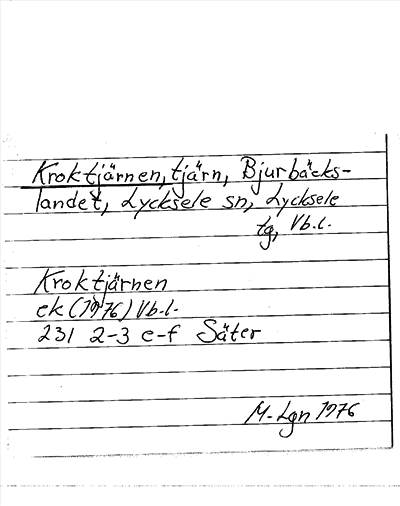 Kroktjärnen, tjärn, Bjurbäcks-
landet, Lycksele sn, Lycksele
tg, Vb.l.
Kroktjärnen
ek (1976) Vb.l.
231 2-3 e-f Säter
M. Lgn 1976